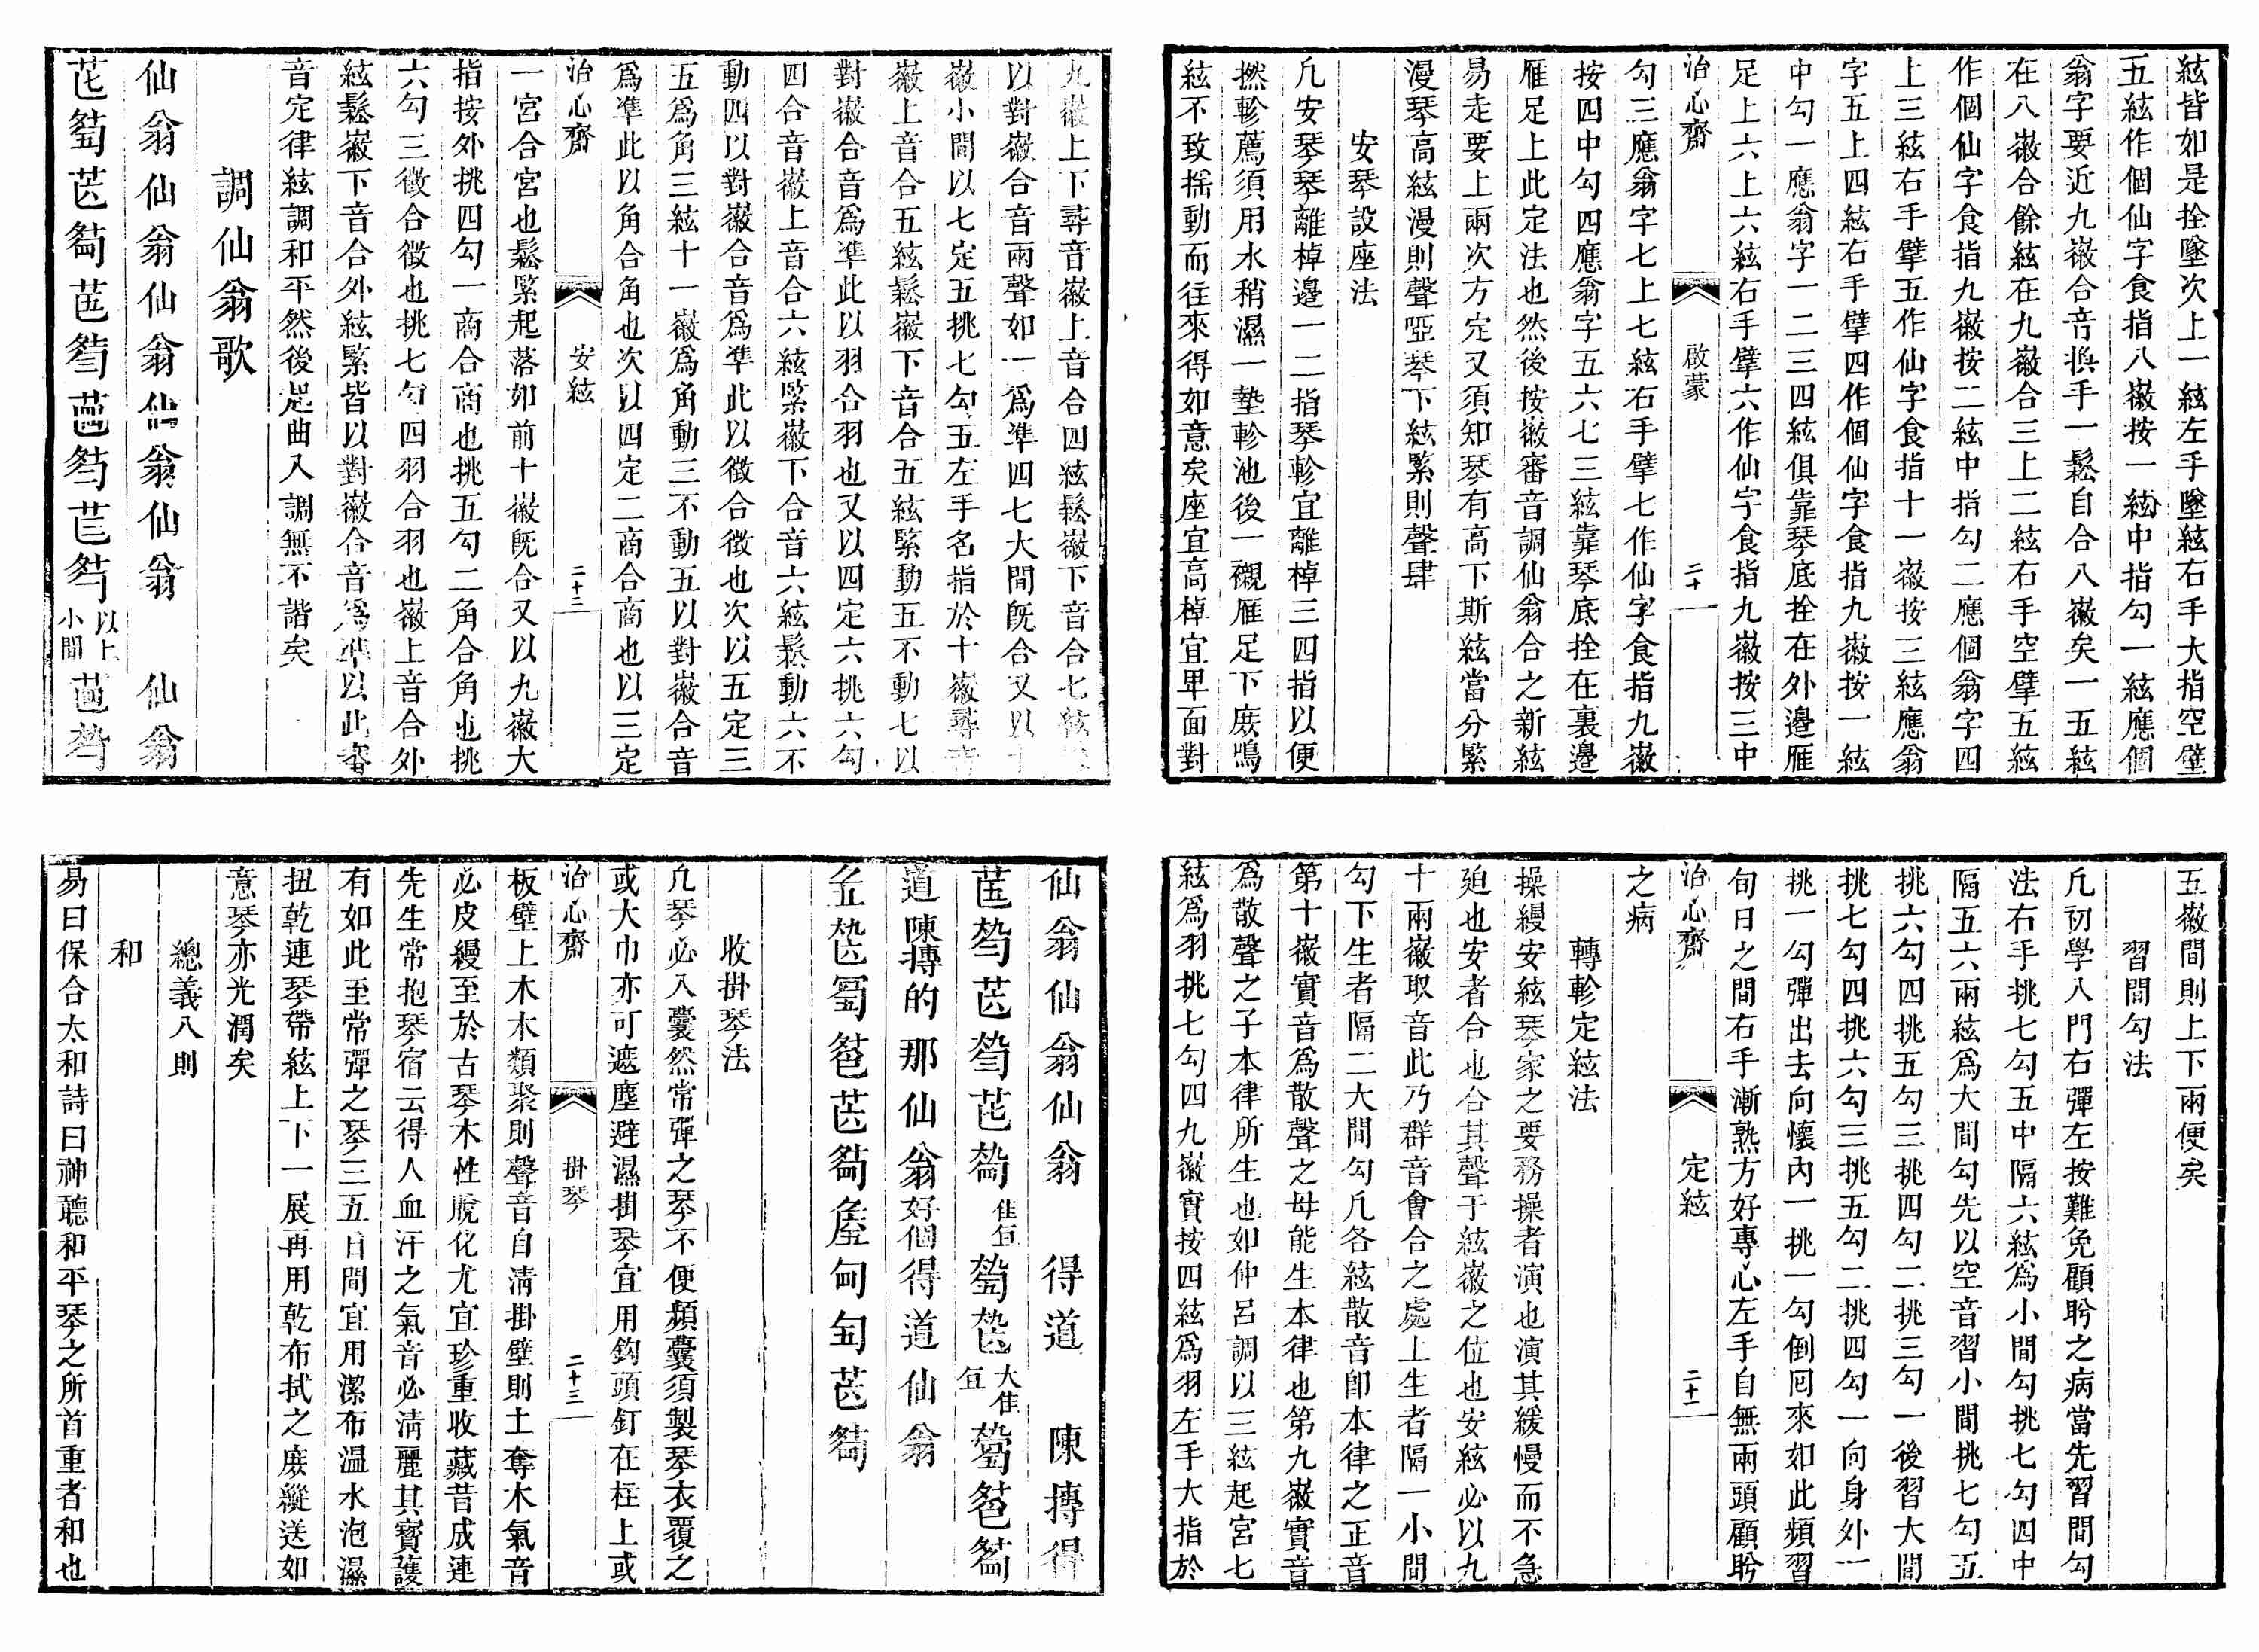 絃皆如是拴墜次上一絃左手墜絃右手大指空擘
五絃作個仙字食指八徽按一絃中指勾一絃應個
翁字要近九徽合音換手一鬆自合八徽矣一五絃
在八徽合餘絃在九徽合三上二絃右手空擘五絃
作個仙字食指九徽按二絃中指勾二應個翁字四
上三絃右手擘五作仙字食指十一徽按三絃應翁
字五上四絃右手擘四作個仙字食指九徽按一絃
中勾一應翁字一二三四絃俱靠琴底拴在外邊雁
足上六上六絃右手擘六作仙字食指九徽按三中
治心齋 啟蒙 二十
勾三應翁字七上七絃右手擘七作仙字食指九徽
按四中勾四應翁字五六七三絃靠琴底拴在裏邊
雁足上此定法也然後按徽審音調仙翁合之新絃
易走要上兩次方定又須知琴有高下斯絃當分緊
漫琴高絃漫則聲啞琴下絃緊則聲肆
安琴設座法
凡安琴琴離棹邊一二指琴軫宜離棹三四指以便
撚軫薦須用水稍濕一墊軫池後一襯雁足下庶鳴
絃不致揺動而往來得如意矣座宜高棹宜卑面對
五徽間則上下兩便矣
習間勾法
凡初學入門右彈左按難免顧盻之病當先習間勾
法右手挑七勾五中隔六絃為小間勾挑七勾四中
隔五六兩絃為大間勾先以空音習小間挑七勾五
挑六勾四挑五勾三挑四勾二挑三勾一後習大間
挑七勾四挑六勾三挑五勾二挑四勾一向身外一
挑一勾彈出去向懷內一挑一勾倒囘來如此頻習
旬日之間右手漸熟方好專心左手自無兩頭顧盻
治心齋 定絃 二十一
之病
轉軫定絃法
操縵安絃琴家之要務操者演也演其緩慢而不急
廹也安者合也合其聲于絃徽之位也安絃必以九
十兩徽取音此乃群音會合之處上生者隔一小間
勾下生者隔二大間勾凡各絃散音卽本律之正音
第十徽實音爲散聲之母能生本律也第九徽實音
爲散聲之子本律所生也如仲呂調以三絃起宮七
絃爲羽挑七勾四九徽實按四絃爲羽左手大指於
九徽上下尋音徽上音合四絃鬆徽下音合七絃
以對徽合音兩聲如一爲準四七大間旣合又以十
徽小間以七定五挑七勾五左手名指於十徽尋音
徽上音合五絃鬆徽下音合五絃緊動五不動七以
對徽合音爲準此以羽合羽也又以四定六挑六勾
四合音徽上音合六絃緊徽下合音六絃鬆動六不
動四以對徽合音爲準此以徵合徵也次以五定三
五爲角三絃十一徽爲角動三不動五以對徽合音
爲準此以角合角也次以四定二商合商也以三定
治心齋 安絃 二十二
一宮合宮也鬆緊起落如前十徽旣合又以九徽大
指按外挑四勾一商合商也挑五勾二角合角也挑
六勾三徵合徵也挑七勾四羽合羽也徽上音合外
絃鬆徽下音合外絃緊皆以對徽合音爲準以此審
音定律絃調和平然後起曲入調無不諧矣
調仙翁歌
仙翁仙翁仙翁仙翁仙翁 仙翁
以上小間
仙翁仙翁仙翁 得道 陳摶得
道陳摶的那仙翁好個得道仙翁
收掛琴法
凡琴必入囊然常彈之琴不便頻囊須製琴衣覆之
或大巾亦可遮塵避濕掛琴宜用鈎頭釘在柱上或
治心齋 掛琴 二十三
板壁上木木類聚則聲音自淸掛壁則土奪木氣音
必皮縵至於古琴木性脫化尤宜珍重收藏昔成連
先生常抱琴宿云得人血汗之氣音必淸麗其寶護
有如此至常彈之琴三五日間宜用潔布溫水泡濕
扭乾連琴帶絃上下一展再用乾布拭之庶縱送如
意琴亦光潤矣
總義八則
和
易曰保合太和詩曰神聽和平琴之所首重者和也